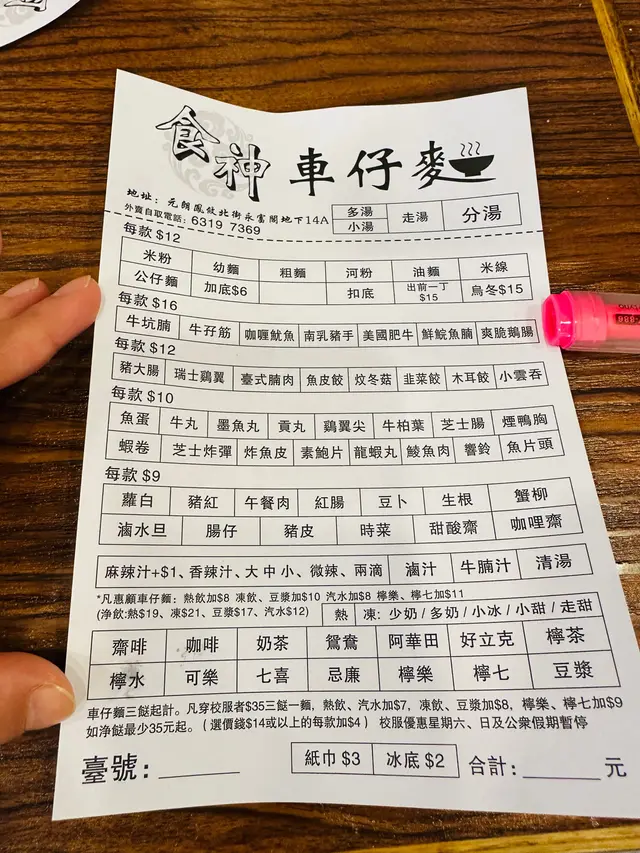 食神 車仔麥
地址：元朗鳳攸北街永富閣地下14A
外賣自取電話：6319 7369
多湯 走湯 分湯
小湯
每款 $12
米粉 幼麵 粗麵 河粉 油麵 米線
公仔麵 加底$6 扣底 出前一丁$15 烏冬$15
每款 $16
牛坑腩 牛孖筋 咖喱魷魚 南乳豬手 美國肥牛 鮮鯇魚腩 爽脆鵝腸
每款 $12
豬大腸 瑞士鷄翼 臺式腩肉 魚皮餃 炆冬菇 韭菜餃 木耳餃 小雲吞
每款 $10
魚蛋 牛丸 墨魚丸 貢丸 鷄翼尖 牛柏葉 芝士腸 煙鴨胸
蝦卷 芝士炸彈 炸魚皮 素鮑片 龍蝦丸 鯪魚肉 響鈴 魚片頭
每款 $9
蘿白 豬紅 午餐肉 紅腸 豆卜 生根 蟹柳
滷水旦 腸仔 豬皮 時菜 甜酸齋 咖哩齋
麻辣汁+$1、香辣汁、大中小、微辣、兩滴 滷汁 牛腩汁 清湯
*凡惠顧車仔麵：熱飲加$8 凍飲、豆漿加$10 汽水加$8 檸樂、檸七加$11
(淨飲:熱$19、凍$21、豆漿$17、汽水$12) 熱 凍: 少奶 / 多奶 / 小冰 / 小甜 / 走甜
齋啡 咖啡 奶茶 鴛鴦 阿華田 好立克 檸茶
檸水 可樂 七喜 忌廉 檸樂 檸七 豆漿
車仔麵三餸起計。凡穿校服者$35三餸一麵，熱飲、汽水加$7，凍飲、豆漿加$8，檸樂、檸七加$9
如淨餸最少35元起。（選價錢$14或以上的每款加$4） 校服優惠星期六、日及公衆假期暫停
臺號：
紙巾 $3 冰底 $2 合計： 元